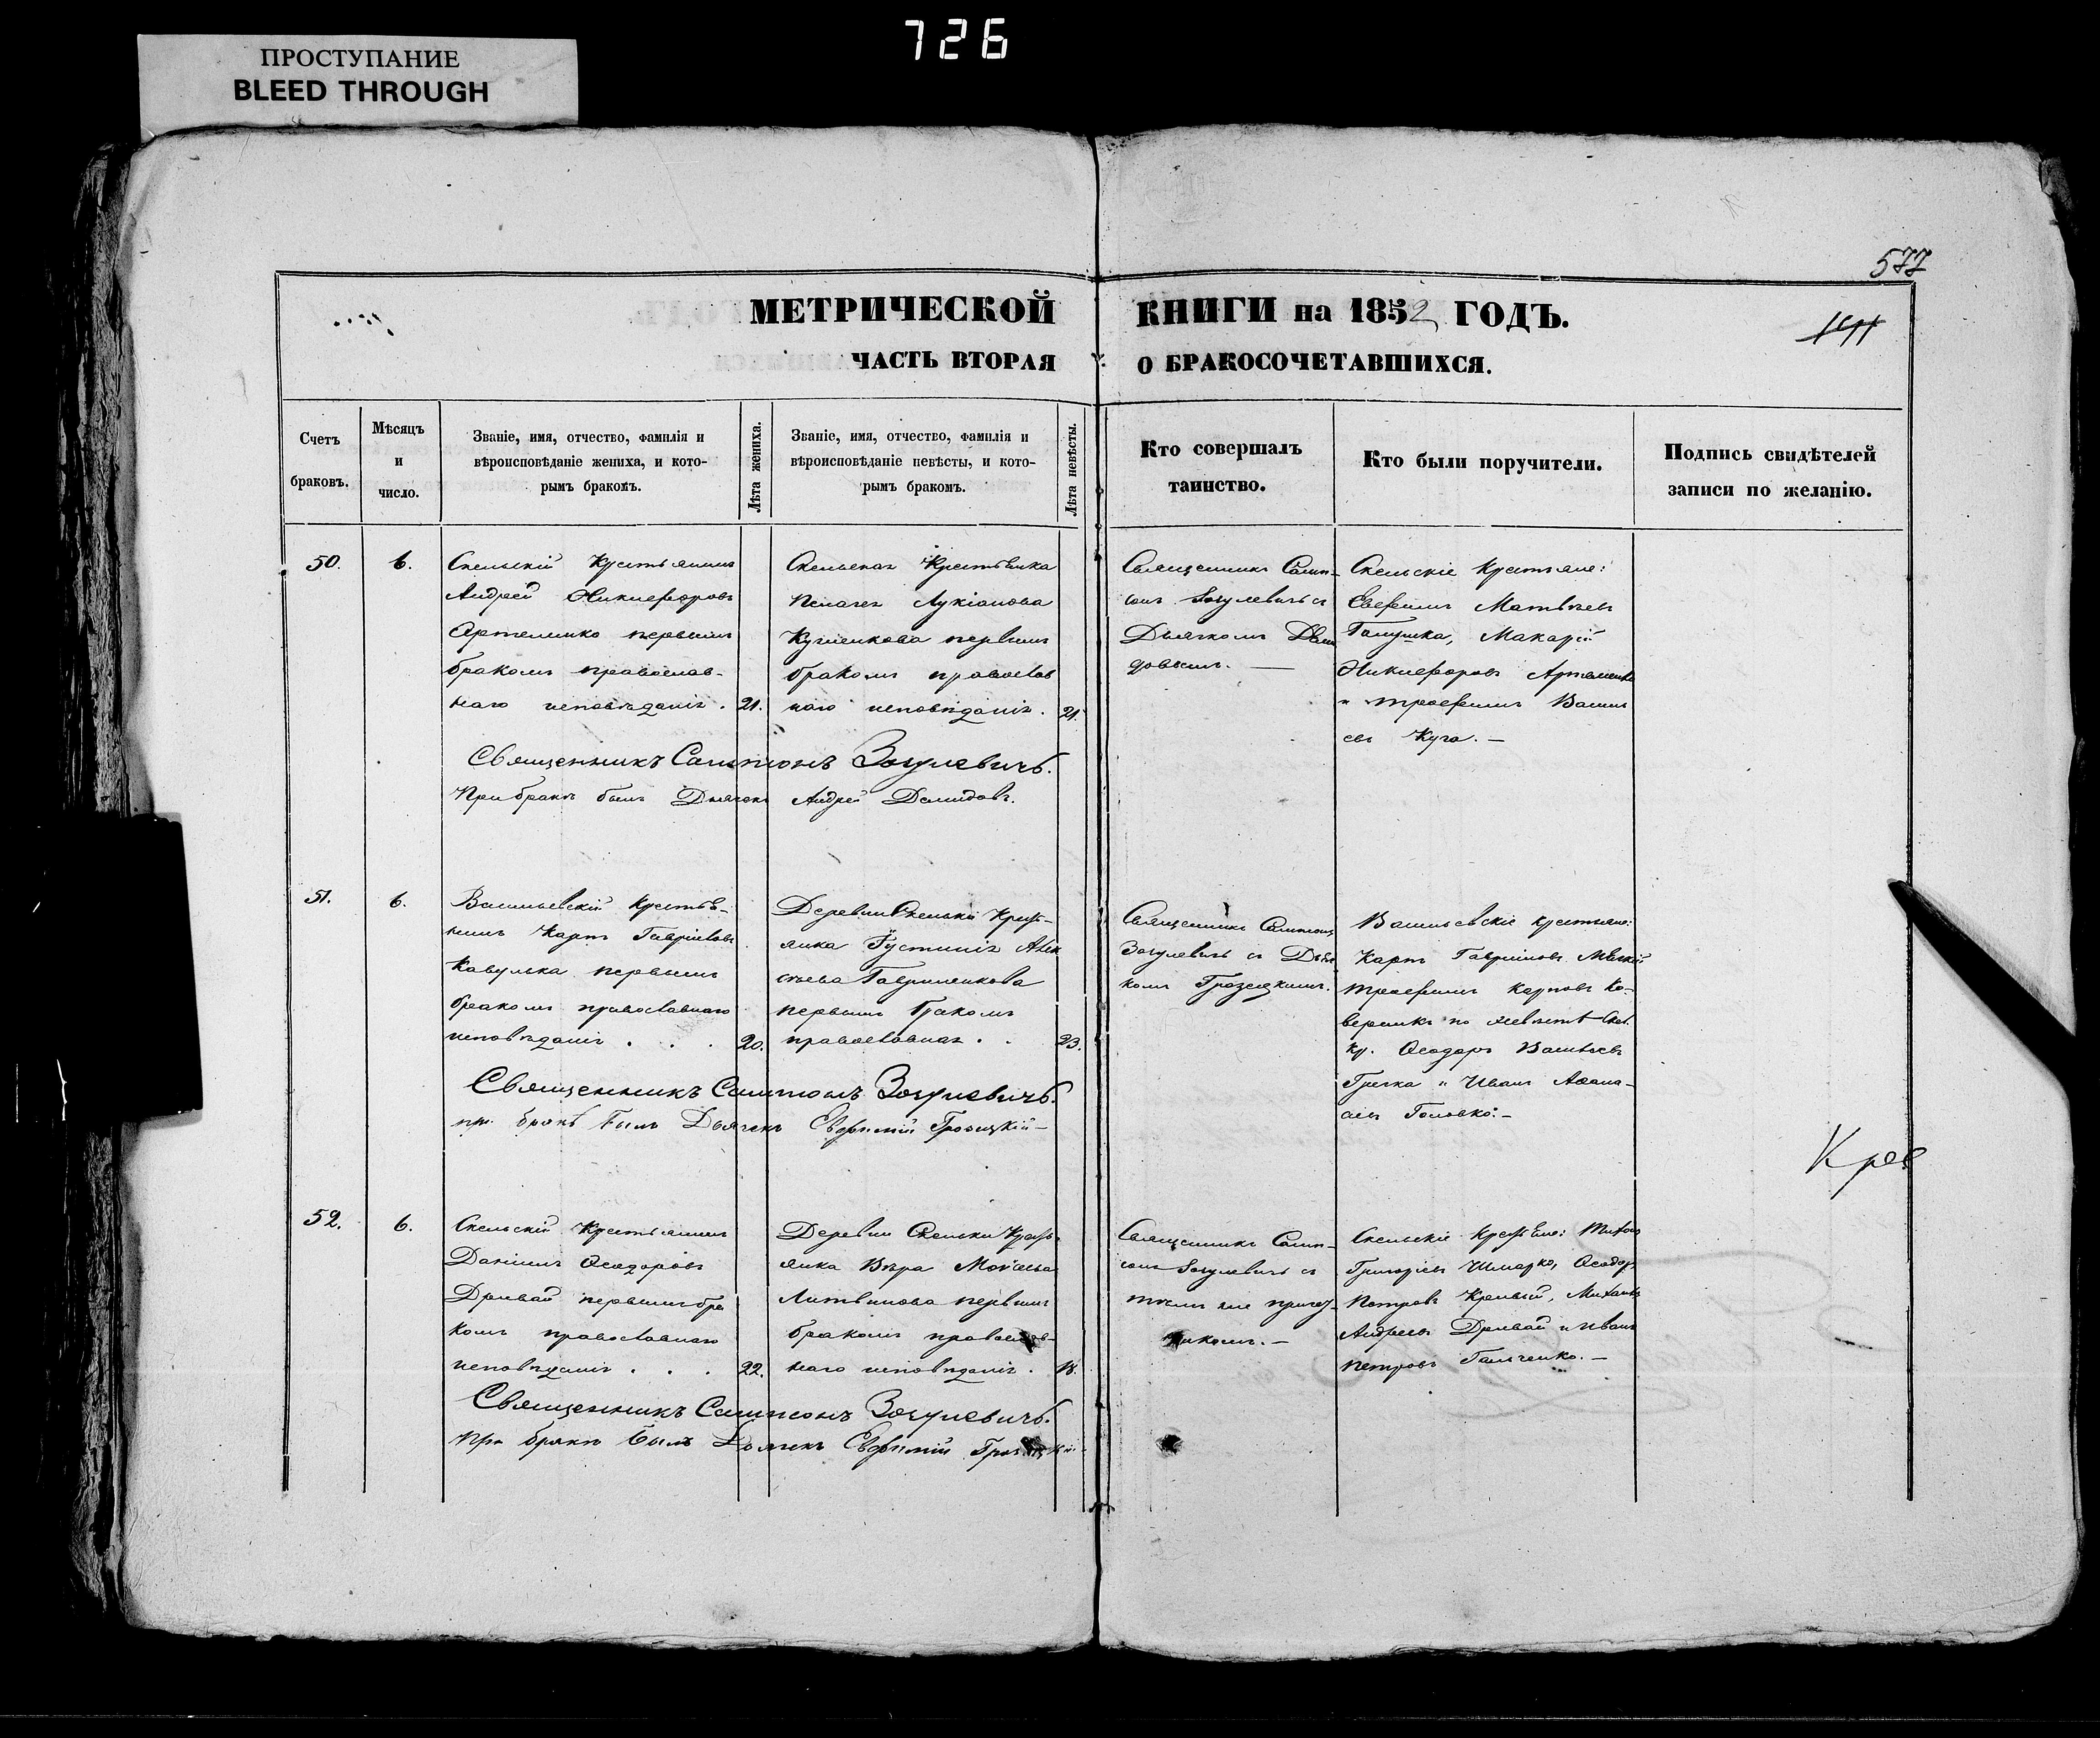 726
ПРОСТУПАНИЕ
BLEED THROUGH
577
МЕТРИЧЕСКОЙ КНИГИ на 1852 ГОДЪ.
ЧАСТЬ ВТОРАЯ О БРАКОСОЧЕТАВШИХСЯ.
Счетъ
браковъ.
Мѣсяцъ
и
число.
Званіе, имя, отчество, фамилія и
вѣроисповѣданіе жениха, и кото-
рымъ бракомъ.
Лѣта жениха.
Званіе, имя, отчество, фамилія и
вѣроисповѣданіе невѣсты, и кото-
рымъ бракомъ.
Лѣта невѣсты.
Кто совершалъ
таинство.
Кто были поручители.
Подпись свидѣтелей
записи по желанію.
50.
6.
Скельскій Крестьянинъ
Андрей Никифоровъ
Артеменко первымъ
бракомъ православ-
наго исповѣданія. 21.
Скельская Крестьянка
Пелагея Лукіанова
первымъ
бракомъ православ
наго исповѣданія. 21.
Священникъ Самп-
сонъ Зогулевичъ съ
Дьячкомъ Деми
довымъ. —
Скельскіе Крестьяне:
Евфимъ Матвѣевъ
Галушка, Макарій
Никифоровъ Артеменко
и Трофимъ Васил
евъ Куча. —
Священникъ Сампсонъ Зогулевичъ.
При бракѣ былъ Дьячекъ Андрей Демидовъ.
51.
6.
Васильевскій крестья-
нинъ Карпъ Гавріиловъ
первымъ
бракомъ православнаго
исповѣданія . . . 20.
Деревни Скельки Крест-
янка Іустинія Алек
сѣева Гавриленкова
первымъ бракомъ
православная . . 23.
Священникъ Сампсонъ
Зогулевичъ съ Дьяч
комъ Грозицкимъ.
Васильевскіе крестьяне:
Карпъ Гавриловъ
Трофимъ Карповъ Ко-
верникъ по невѣстѣ Скел.
кр. Ѳеодоръ Васильевъ
Гречка и Иванъ Аѳана-
сіевъ Головко: —
Священникъ Сампсонъ Зогулевичъ.
при бракѣ былъ Дьячекъ Евфимій Грозицкій —
Крев
52.
6.
Скельскій Крестьянинъ
Даніилъ Ѳеодоровъ
Дривай первымъ бра
комъ православнаго
исповѣданія . . . 22.
Деревни Скельки Крест-
янка Вѣра Моѵсеева
Литвинова первымъ
бракомъ православ-
наго исповѣданія. 18.
Священникъ Самп-
сонъ Зогулевичъ съ
тѣмъ же причет-
никомъ. —
Скельскіе Крестьяне:
Григорьевъ Шмарко, Ѳеодоръ
Петровъ Кривый, Михаилъ
Андреевъ Дривай и Иванъ
Петровъ Гальченко. —
Священникъ Сампсонъ Зогулевичъ.
При бракѣ былъ Дьячекъ Евфимій Грозицкій